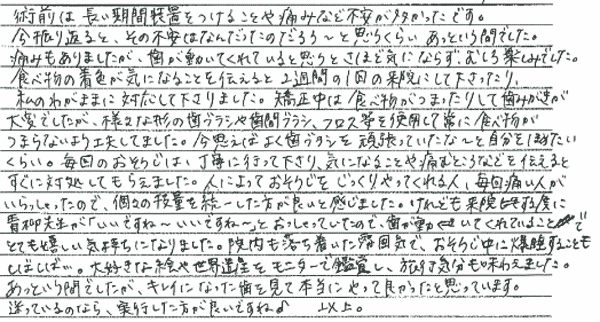 術前は長い期間装置をつけることや痛みなど不安が多かったです。
今振り返ると、その不安はなんだったのだろう～と思うくらいあっという間でした。
痛みもありましたが、歯が動いてくれていると思うとさほど気にならず、むしろ楽しみでした。
食べ物の着色が気になることを伝えると2週間の1回の来院にして下さったり、
私のわがままに対応して下さりました。矯正中は食べ物がつまったりして歯みがきが
大変でしたが、様々な形の歯ブラシや歯間ブラシ、フロス等を使用して常に食べ物が
つまらないよう工夫してました。今思えばよく歯ブラシを頑張っていたな～と自分をほめたい
くらい。毎回のおそうじは、丁寧に行って下さり、気になることや痛むところなどを伝えると
すぐに対処してもらえました。人によっておそうじをじっくりやってくれる人、毎回痛い人が
いらっしゃったので、個々の技量を統一した方が良いと感じました。けれども来院する度に
青柳先生が「いいですね～いいですね～」とおっしゃっていたので、歯が動いてくれていることが
とても嬉しい気持ちになりました。院内も落ち着いた雰囲気で、おそうじ中に爆睡することも
しばしば…。大好きな絵や世界遺産をモニターで鑑賞し、旅行気分も味わえました。
あっという間でしたが、キレイになった歯を見て本当にやって良かったと思っています。
迷っているのなら、実行した方が良いですね♪ 以上。